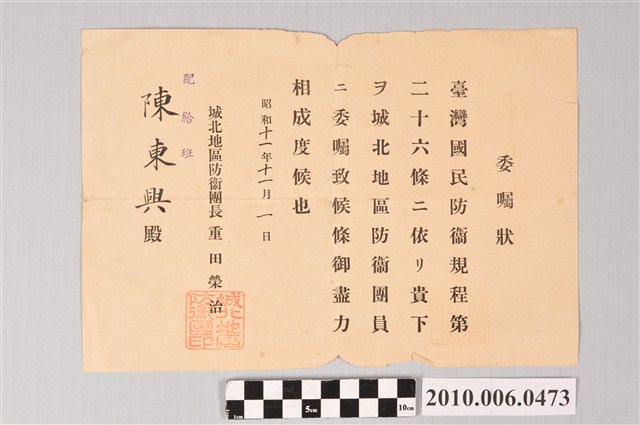 委嘱狀
臺灣國民防衞規程第
二十六條ニ依リ貴下
ヲ城北地區防衞團員
ニ委嘱致候條御盡力
相成度候也
昭和十一年十一月一日
城北地區防衞團長 重田榮治
城北地區防衞團印
配給班
陳東興殿
1cm 5cm 10cm
2010.006.0473